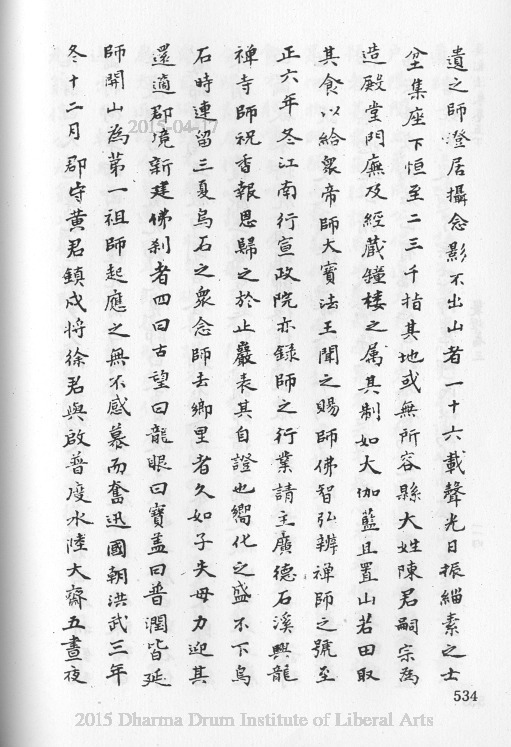 遺之師澄居攝念影不出山者一十六載聲光日振緇素之士
坌集座下恒至二三千指其地或無所容縣大姓陳君嗣宗為
造殿堂門廡及經藏鐘樓之属其制如大伽藍且置山若田取
其食以給衆帝師大寳法王聞之賜師佛智弘辨禅師之號至
正六年冬江南行宣政院亦録師之行業請主廣德石溪興龍
禅寺師祝香報恩歸之於止巖表其自證也嚮化之盛不下烏
石時連留三夏烏石之衆念師去鄉里者久如子失母力迎其
還適郡境新建佛刹者四曰古望曰龍眼曰寳盖曰普潤皆延
師開山為第一祖師起應之無不感慕而奮迅國朝洪武三年
冬十二月郡守黃君鎮戍將徐君與啟普度水陸大齋五晝夜
534
2015-04-17
2015 Dharma Drum Institute of Liberal Arts